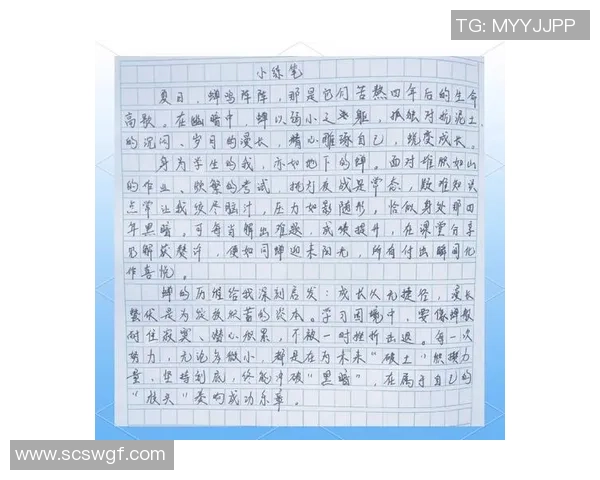 TG: MYYJJPP
小练笔
夏日,蝉鸣阵阵,那是它们苦熬四年后的生命
高歌。在幽暗中,蝉以弱小之躯,孤独对抗泥土
的沉闷、岁月的漫长,精心雕琢自己,蜕变成长。
身为学生的我,亦如地下的蝉。面对堆积如山
的作业、频繁的考试,挑灯夜战是常态,疑难知识
点常让我绞尽脑汁,压力如影随形,恰似身处那四
年黑暗。可每当解出难题,成绩提升,在课堂分享
见解获赞许,便如同蝉迎来阳光,所有付出瞬间化
作喜悦。
蝉的历程给我深刻启发:成长从无捷径,漫长
蛰伏是为绽放积蓄的资本。学习困境中,要像蝉般
耐住寂寞、潜心积累,不被一时挫折击退。每一次
努力,无论多微小,都是在为未来“破土”积攒力
量,坚持到底,终能冲破“黑暗”,在属于自己的
“枝头”奏响成功乐章。
www.scswgf.com